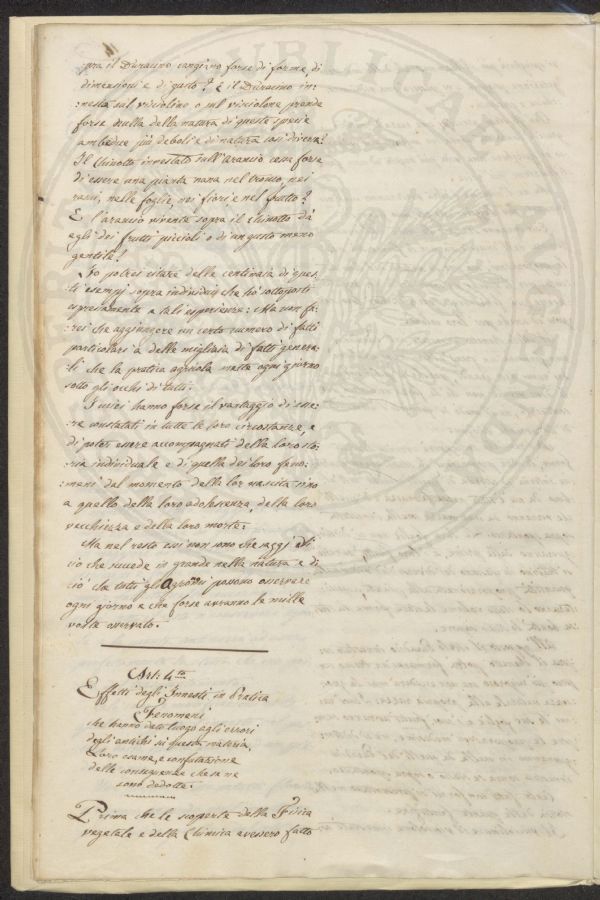 :pra il Duracino cangiano forse di forme, di
dimensioni e di gusto? E il Duracino in:
:nestato sul visciolino o sul visciolone prende
forse nulla della natura di queste specie
ambedue più deboli e di natura così diversa?
Il Chinotto innestato sull'arancio cessa forse
di essere una pianta nana nel tronco, nei
rami, nelle foglie, nei fiori e nel frutto?
E l'arancio vivente sopra il Chinotto dà
egli dei frutti piccioli o di un gusto meno
gentile?
Io potrei citare delle centinaia di ques:
:ti esempj sopra individui che hò sottoposti
espressamente a tali esperienze: Ma non fa:
:rei che aggiungere un certo numero di fatti
particolari a delle migliaia di fatti genera:
:li che la pratica agricola mette ogni giorno
sotto gli occhi di tutti.
I miei hanno forse il vantaggio di esse:
:re constatati in tutte le loro circostanze, e
di poter essere accompagnati della loro sto:
:ria individuale e di quella dei loro feno:
:meni dal momento della lor nascita sino
a quello della loro adolescenza, della loro
vecchiezza e della loro morte.
Ma nel resto essi non sono che saggj di
ciò che succede in grande nella natura e di
ciò che tutti gli Agronomi possono osservare
ogni giorno e che forse avranno le mille
volte osservato.
Art: 4.to
Effetti degli Innesti in Pratica
Fenomeni
che hanno dato luogo agli errori
degli antichi su questa materia,
Loro esame, e confutazione
delle conseguenze che se ne
sono dedotte.
Prima che le scoperte della Fisica
vegetale e della Chimica avessero fatto